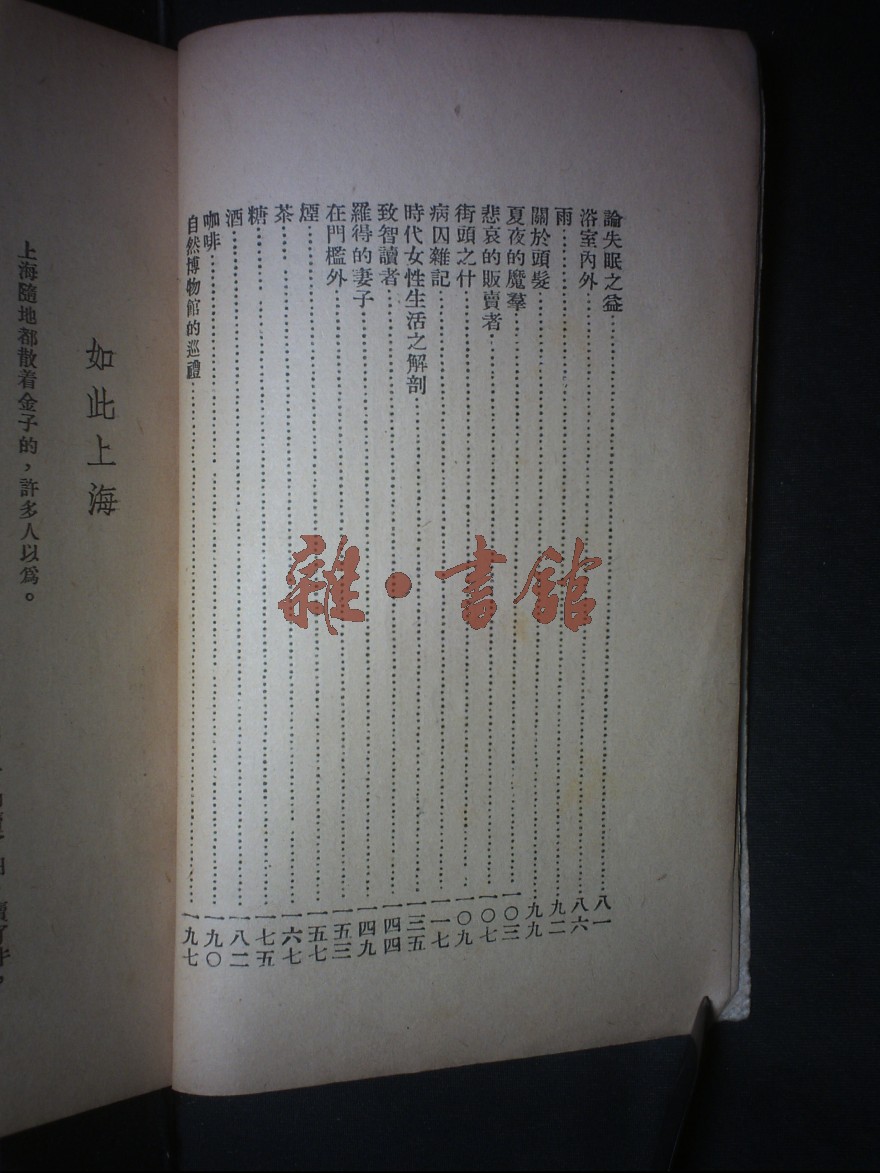 論失眠之益……八一
浴室內外……八六
雨……九二
關於頭髮……九九
夏夜的魔羣……一〇三
悲哀的販賣者……一〇七
街頭之什……一〇九
病囚雜記……一一七
時代女性生活之解剖……一三五
致智讀者……一四四
羅得的妻子……一四九
在門檻外……一五三
煙……一五七
茶……一六七
糖……一七五
酒……一八二
咖啡……一九〇
自然博物館的巡禮……一九七
雜·書館
如此上海
上海隨地都散着金子的，許多人以爲。